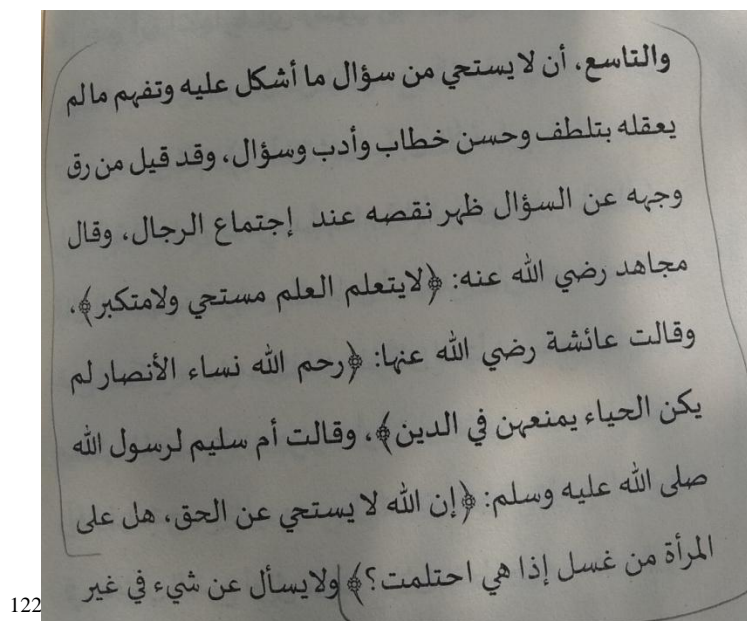 والتاسع، أن لا يستحي من سؤال ما أشكل عليه وتفهم مالم
يعقله بتلطف وحسن خطاب وأدب وسؤال، وقد قيل من رق
وجهه عن السؤال ظهر نقصه عند إجتماع الرجال، وقال
مجاهد رضي الله عنه: ﴿لايتعلم العلم مستحي ولامتكبر﴾،
وقالت عائشة رضي الله عنها: ﴿رحم الله نساء الأنصار لم
يكن الحياء يمنعهن في الدين﴾، وقالت أم سليم لرسول الله
صلى الله عليه وسلم: ﴿إن الله لا يستحي عن الحق، هل على
المرأة من غسل إذا هي احتلمت؟﴾ ولايسأل عن شيء في غير
122